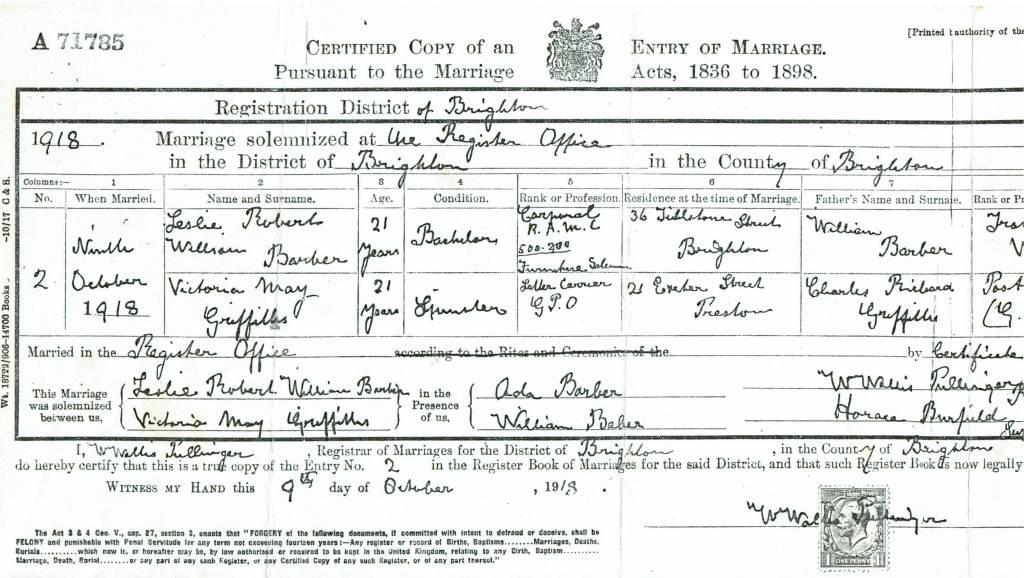 A 71785
[Printed by authority of the
CERTIFIED COPY of an ENTRY OF MARRIAGE.
Pursuant to the Marriage Acts, 1836 to 1898.
Registration District of Brighton
1918. Marriage solemnized at the Register Office
in the District of Brighton in the County of Brighton
Columns:— 1 2 3 4 5 6 7
No. When Married. Name and Surname. Age. Condition. Rank or Profession. Residence at the time of Marriage. Father's Name and Surname. Rank or Pr
2 Ninth October 1918
Leslie Robert William Barber 21 years Bachelor Corporal R.A.M.C 500.200 Furniture Salesman 36 Street Brighton William Barber
Victoria May Griffiths 21 years Spinster Letter Carrier G.P.O 21 Exeter Street Preston Charles Richard Griffiths Post (G.
Married in the Register Office according to the Rites and Ceremonies of the by Certificate
This Marriage was solemnized between us, Leslie Robert William Barber in the Presence of us, Ada Barber W Wallis Pullinger
Victoria May Griffiths William Baber Horace Burfield
I, W Wallis Pullinger, Registrar of Marriages for the District of Brighton, in the County of Brighton
do hereby certify that this is a true copy of the Entry No. 2 in the Register Book of Marriages for the said District, and that such Register Book is now legally
WITNESS MY HAND this 9th day of October, 1918.
W Wallis Pullinger
ONE PENNY
The Act 3 & 4 Geo. V., cap. 27, section 3, enacts that "FORGERY of the following documents, if committed with intent to defraud or deceive, shall be
FELONY and punishable with Penal Servitude for any term not exceeding fourteen years:—Any register or record of Births, Baptisms........Marriages, Deaths,
Burials..........which now is, or hereafter may be, by law authorised or required to be kept in the United Kingdom, relating to any Birth, Baptism..........
Marriage, Death, Burial........or any part of any such Register, or any Certified Copy of any such Register, or of any part thereof."
Wt. 18722/906—14700 Books. —10/17 C & S.